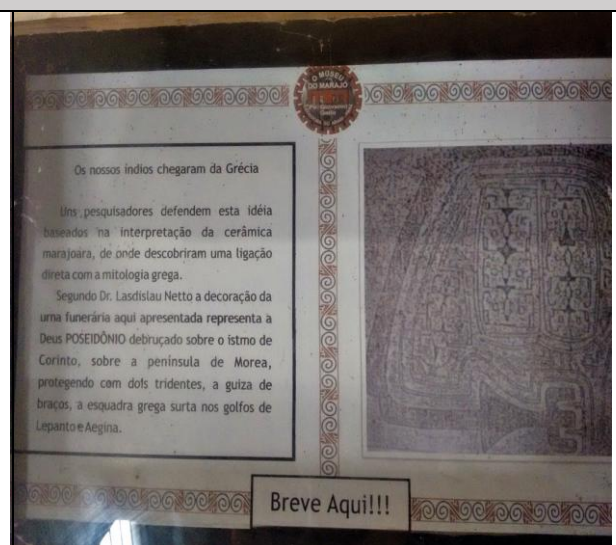 O MUSEU
DO MARAJO
Os nossos índios chegaram da Grécia
Uns pesquisadores defendem esta idéia
baseados na interpretação da cerâmica
marajoara, de onde descobriram uma ligação
direta com a mitologia grega.
Segundo Dr. Lasdislau Netto a decoração da
urna funerária aqui apresentada representa a
Deus POSEIDÔNIO debruçado sobre o istmo de
Corinto, sobre a península de Morea,
protegendo com dois tridentes, a guiza de
braços, a esquadra grega surta nos golfos de
Lepanto e Aegina.
Breve Aqui!!!